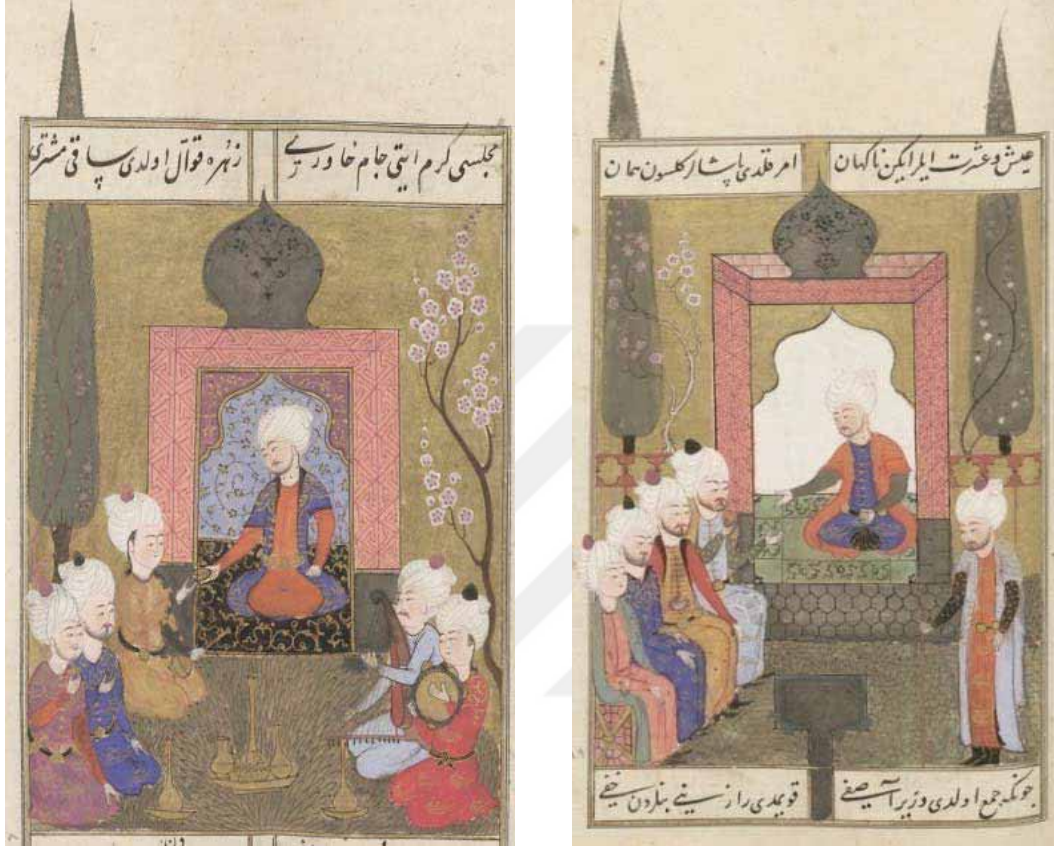 مجلسی کرم ایتی جام خاوری
زهره قوال اولدی ساقی مشتری
عیش و عشرت ایلر ایکن ناکهان
امر قلدی پاشالر کلسون همان
جونکه جمع اولدی وزیر آصفی
قویمدی رازینی بنلردن خفی